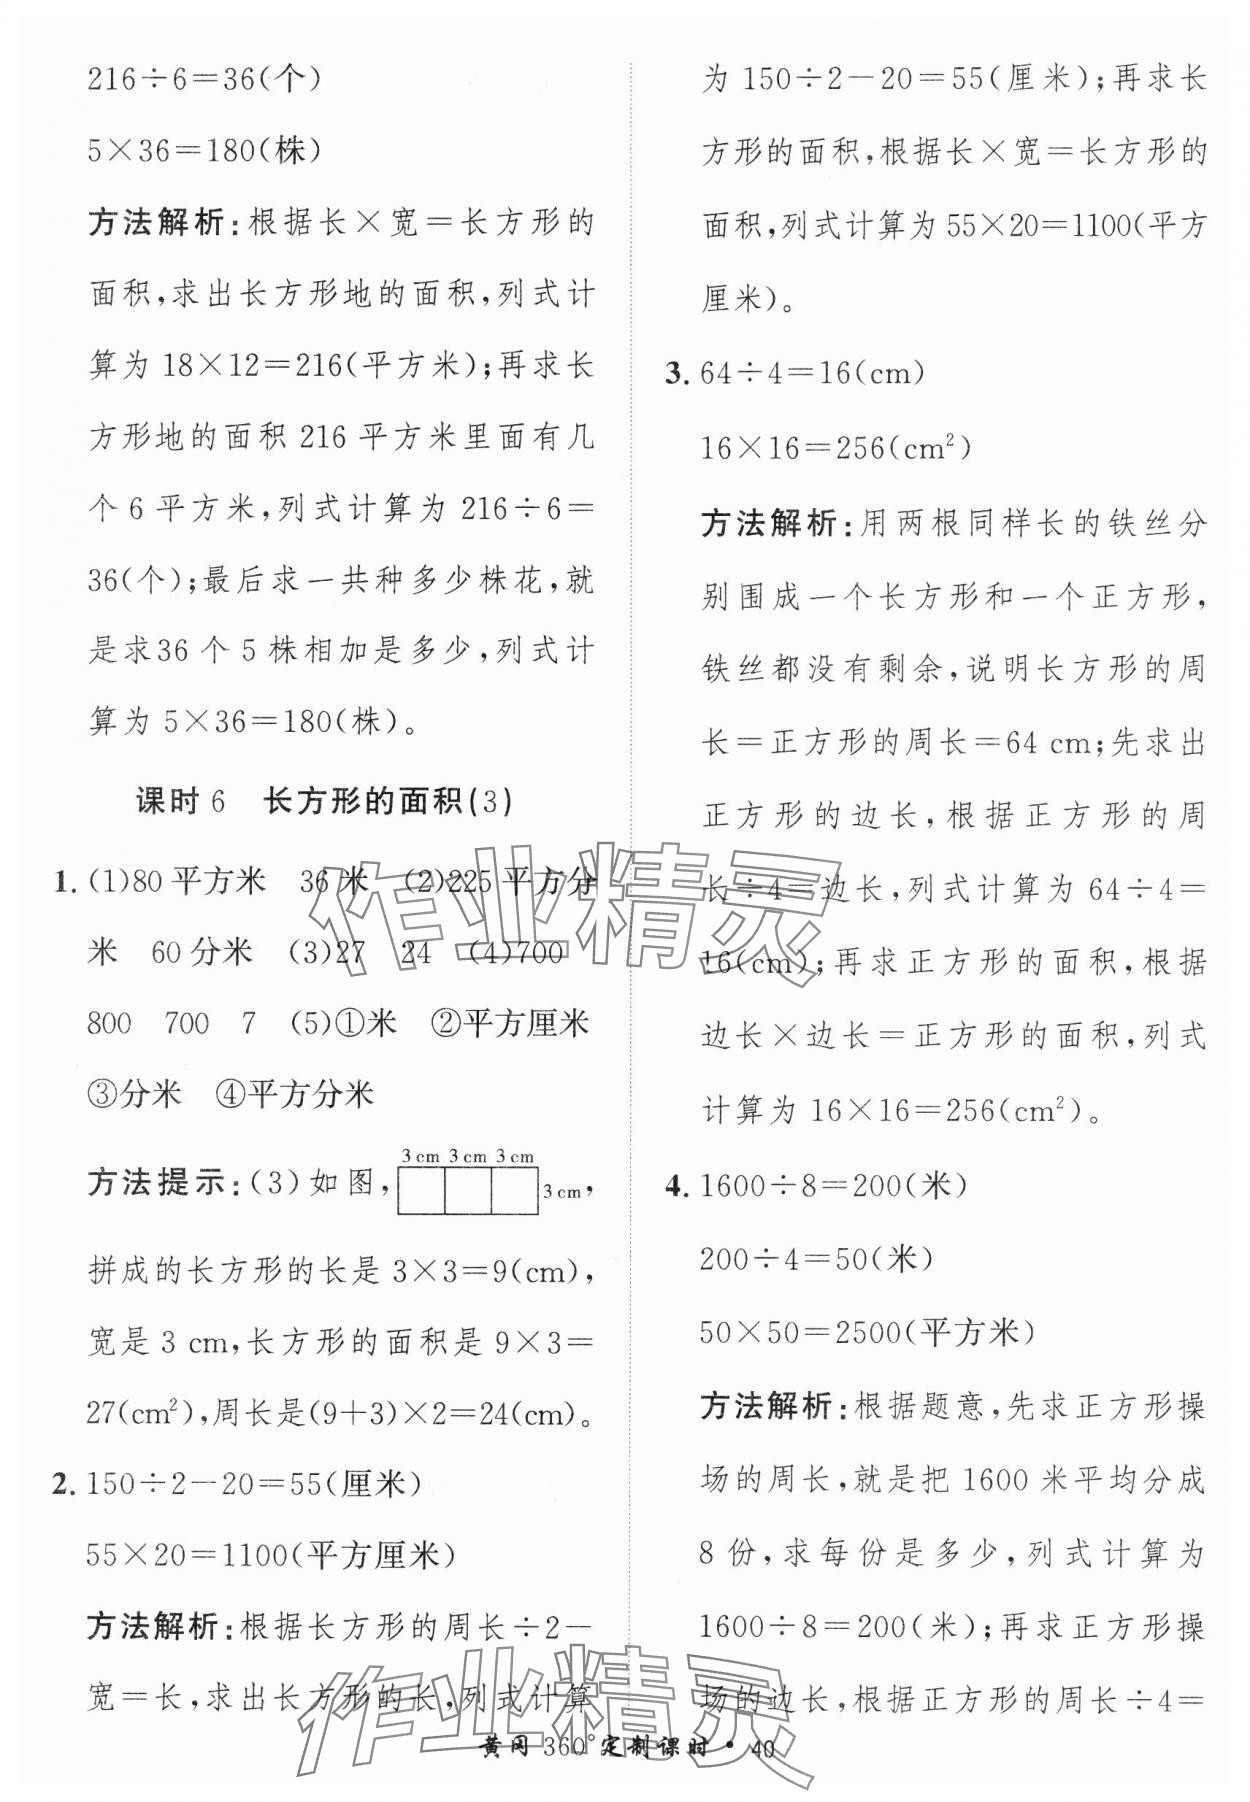 216÷6=36(个)
5×36=180(株)
方法解析:根据长×宽=长方形的
面积,求出长方形地的面积,列式计
算为18×12=216(平方米);再求长
方形地的面积216平方米里面有几
个6平方米,列式计算为216÷6=
36(个);最后求一共种多少株花,就
是求36个5株相加是多少,列式计
算为5×36=180(株)。
课时6 长方形的面积(3)
1. (1)80平方米 36米 (2)225平方分
米 60分米 (3)27 24 (4)700
800 700 7 (5)①米 ②平方厘米
③分米 ④平方分米
方法提示:(3)如图, 3 cm 3 cm 3 cm 3 cm,
拼成的长方形的长是3×3=9(cm),
宽是3 cm,长方形的面积是9×3=
27(cm²),周长是(9+3)×2=24(cm)。
2. 150÷2-20=55(厘米)
55×20=1100(平方厘米)
方法解析:根据长方形的周长÷2-
宽=长,求出长方形的长,列式计算
为150÷2-20=55(厘米);再求长
方形的面积,根据长×宽=长方形的
面积,列式计算为55×20=1100(平方
厘米)。
3. 64÷4=16(cm)
16×16=256(cm²)
方法解析:用两根同样长的铁丝分
别围成一个长方形和一个正方形,
铁丝都没有剩余,说明长方形的周
长=正方形的周长=64 cm;先求出
正方形的边长,根据正方形的周
长÷4=边长,列式计算为64÷4=
16(cm);再求正方形的面积,根据
边长×边长=正方形的面积,列式
计算为16×16=256(cm²)。
4. 1600÷8=200(米)
200÷4=50(米)
50×50=2500(平方米)
方法解析:根据题意,先求正方形操
场的周长,就是把1600米平均分成
8份,求每份是多少,列式计算为
1600÷8=200(米);再求正方形操
场的边长,根据正方形的周长÷4=
黄冈360°定制课时·40
作业精灵
作业精灵